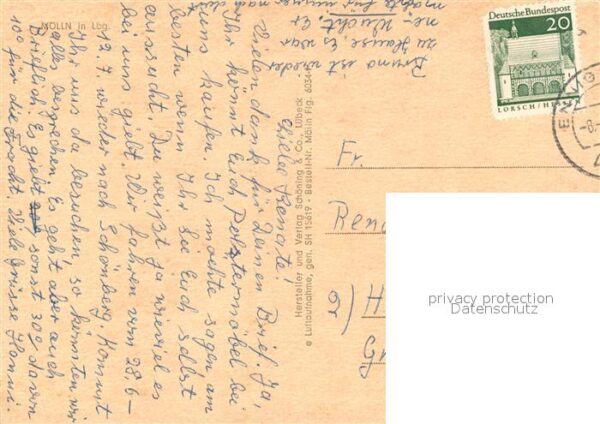 MÖLLN in Lbg.
Liebe Renate!
Vielen dank für Deinen Brief. Ja,
Ihr könnt Euch Polstermöbel bei
uns kaufen. Ich möchte sagen, am
besten wenn Ihr Sie Euch selbst
aussucht. Du weißt ja wieviel es
bei uns giebt. Wir fahren vom 28.6–
12.7 wieder nach Schönberg. Kommt
Ihr uns da besuchen, so könnten wir
alles besprechen. Es geht aber auch
Brieflich. Es giebt sonst 30% davon
10% für die Fracht. Viele Grüsse Hanni.
Bruno ist wieder
zu Hause, Er war
ne Wucht, Er
möchte für immer nach
Hersteller und Verlag Schöning & Co., Lübeck
© Luftaufnahme, gen. SH 15619 - Bestell-Nr. Mölln Flg. 6034
Deutsche Bundespost
20
LORSCH/HESSEN
Fr.
Rena
2/ H
Gr
privacy protection
Datenschutz